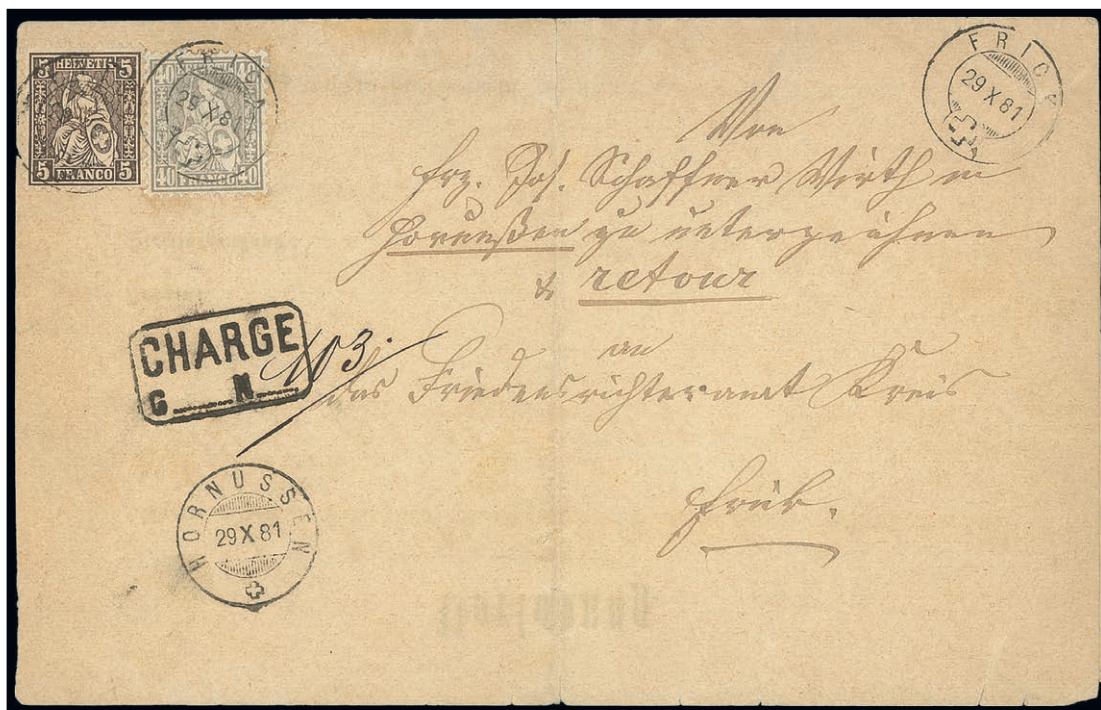 5 HELVETIA 5
5 FRANCO 5
40 HELVETIA 40
40 FRANCO 40
FRICK
29 X 81
FRICK
29 X 81
Von
Frz. Jos. Schaffner Wirth in
Hornussen zu unterzeichnen
& retour
an
das Friedensrichteramt Kreis
Frick.
CHARGE
C N 103.
HORNUSSEN
29 X 81